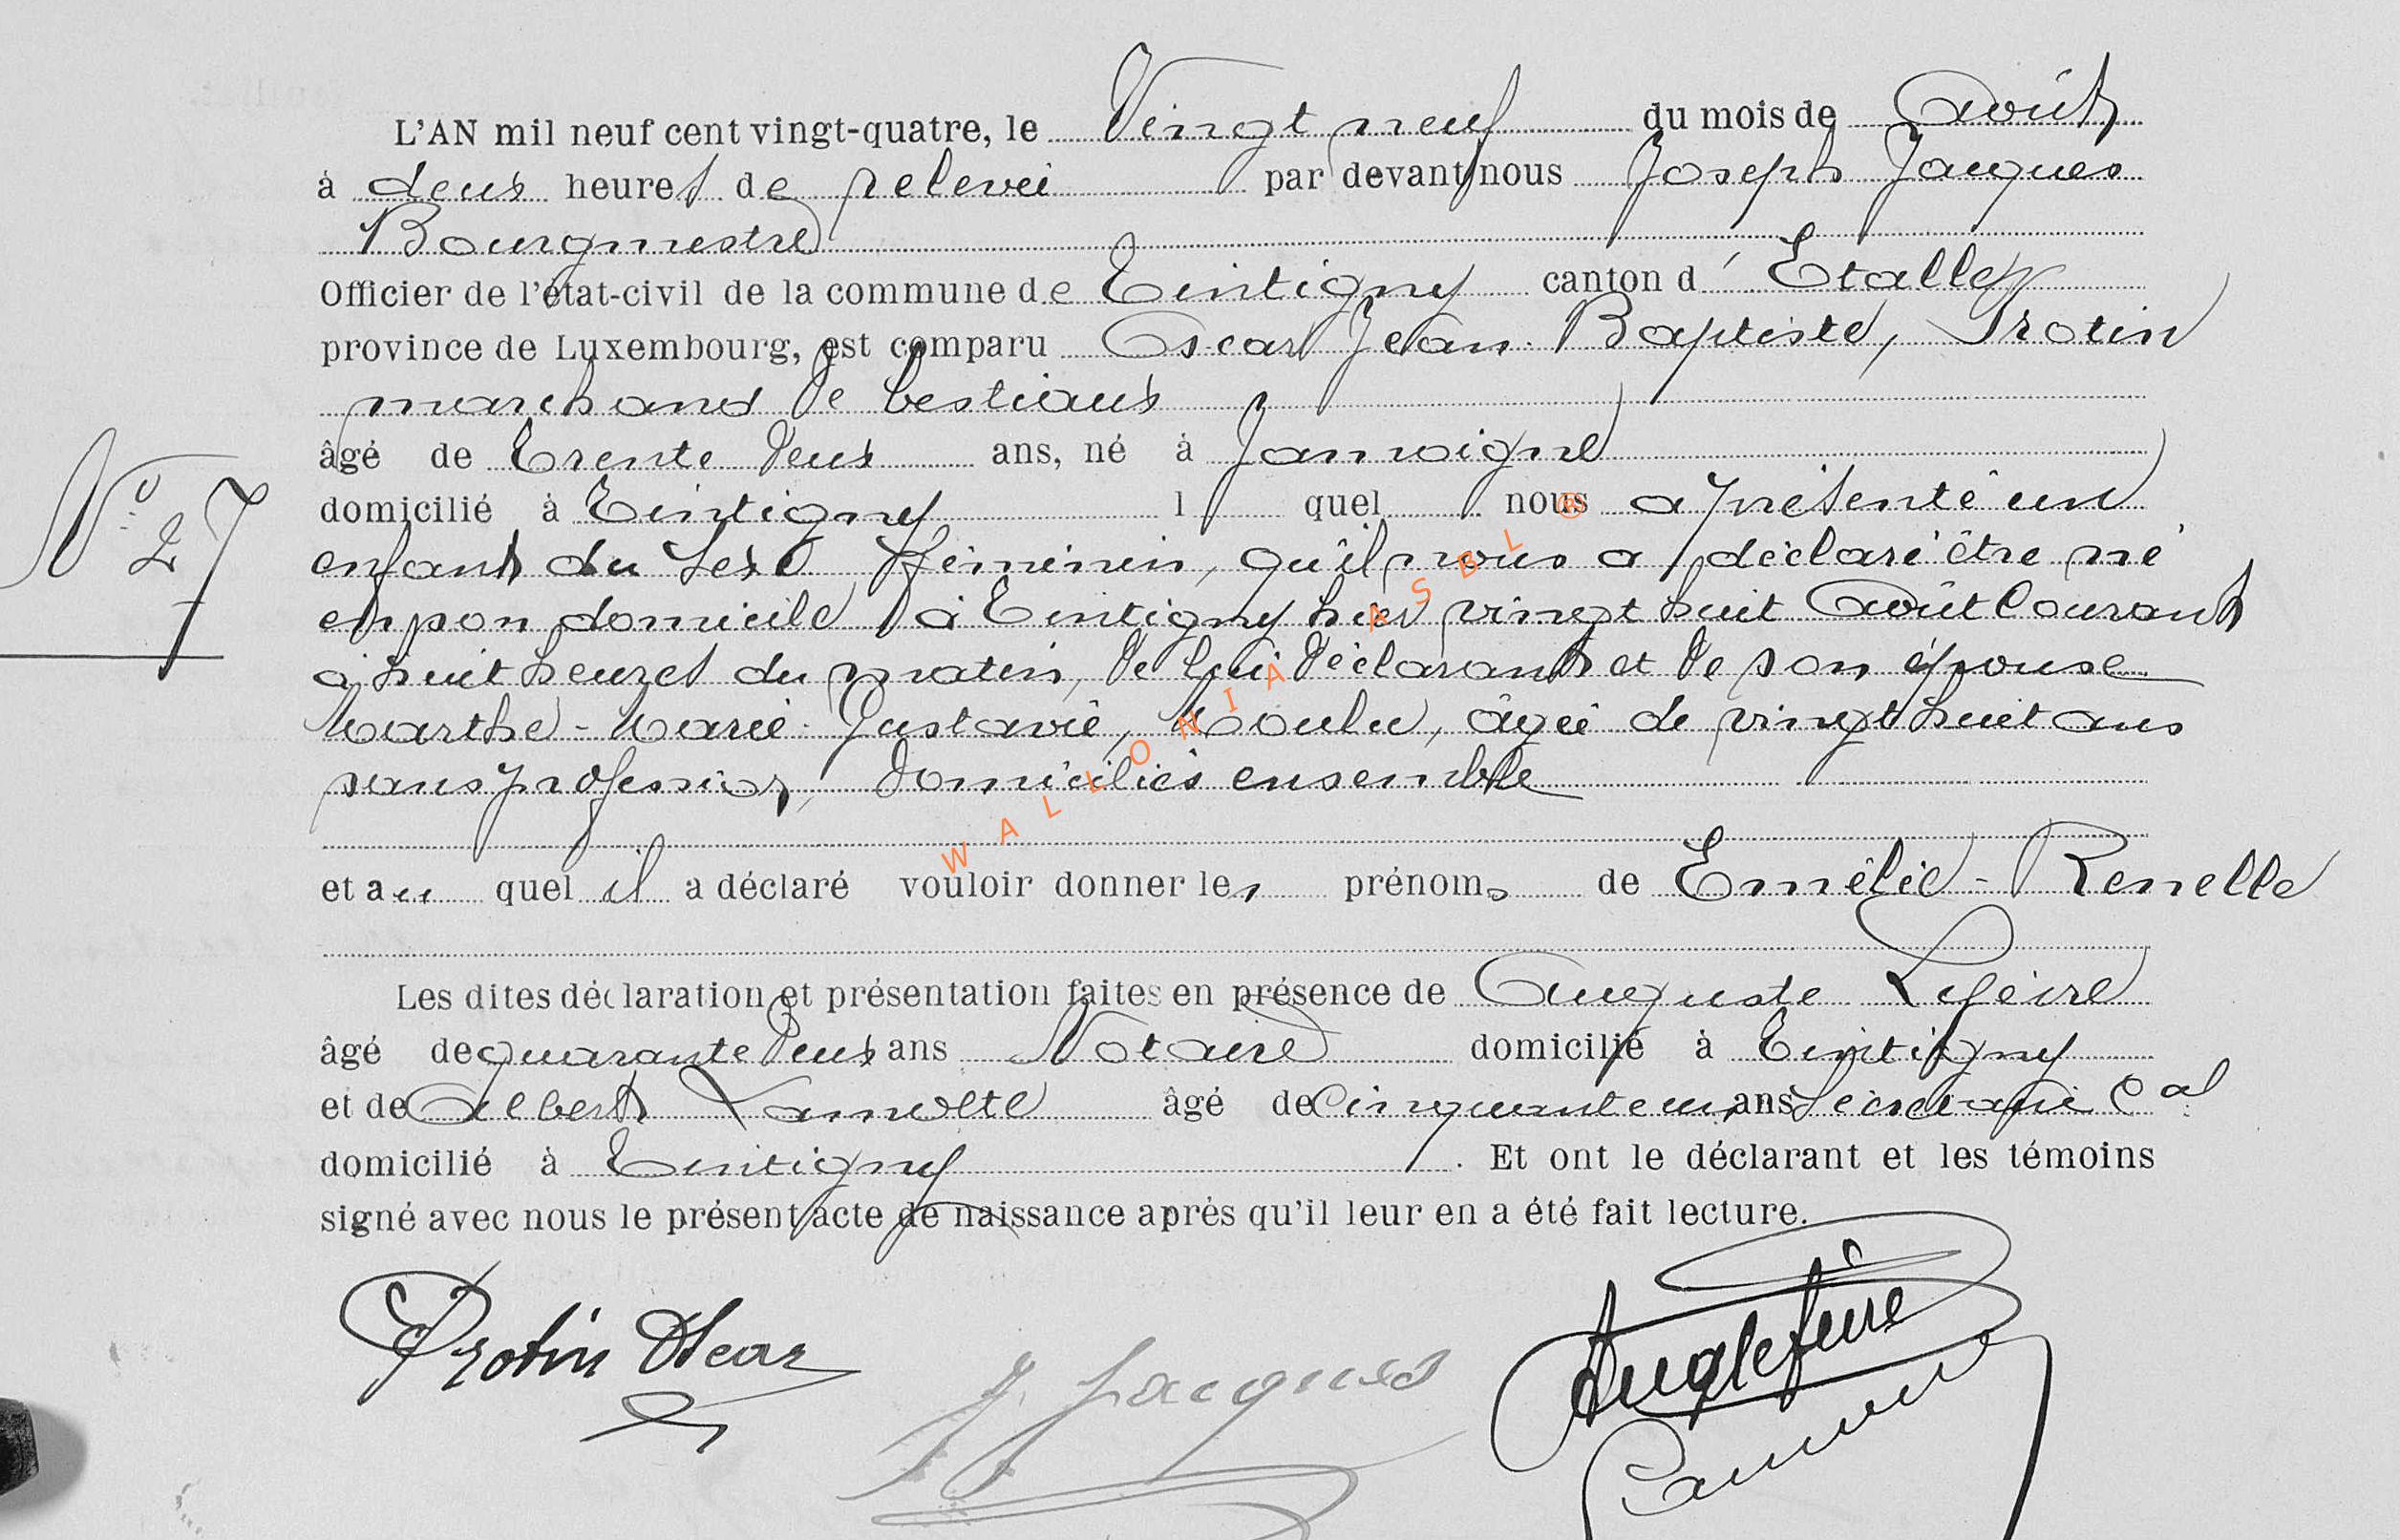 L'AN mil neuf cent vingt-quatre, le Vingt neuf du mois de Août
à deux heures de relevée par devant nous Joseph Jacques
Bourgmestre
Officier de l'état-civil de la commune de Tintigny canton d' Etalle
province de Luxembourg, est comparu Oscar Jean Baptiste, Protin
marchand de bestiaux
âgé de trente deux ans, né à Jamoigne
domicilié à Tintigny l quel nous a présenté un
enfant du sexe féminin, qu'il nous a déclaré être né
en son domicile à Tintigny hier vingt huit Août courant
à huit heures du matin, de lui déclarant et de son épouse
Marthe - Marie - Gustavie, Moulu, âgée de vingt huit ans
sans profession, domiciliés ensemble
et au quel il a déclaré vouloir donner les prénoms de Emélie - Renelle
Les dites déclaration et présentation faites en présence de Auguste Lefèvre
âgé de quarante deux ans Notaire domicilié à Tintigny
et de Albert Lannette âgé de Cinquante un ans Secrétaire Cal
domicilié à Tintigny . Et ont le déclarant et les témoins
signé avec nous le présent acte de naissance après qu'il leur en a été fait lecture.
No 27
Protin Oscar
J. Jacques
Aug Lefèvre
WALLONIA ASBL ®